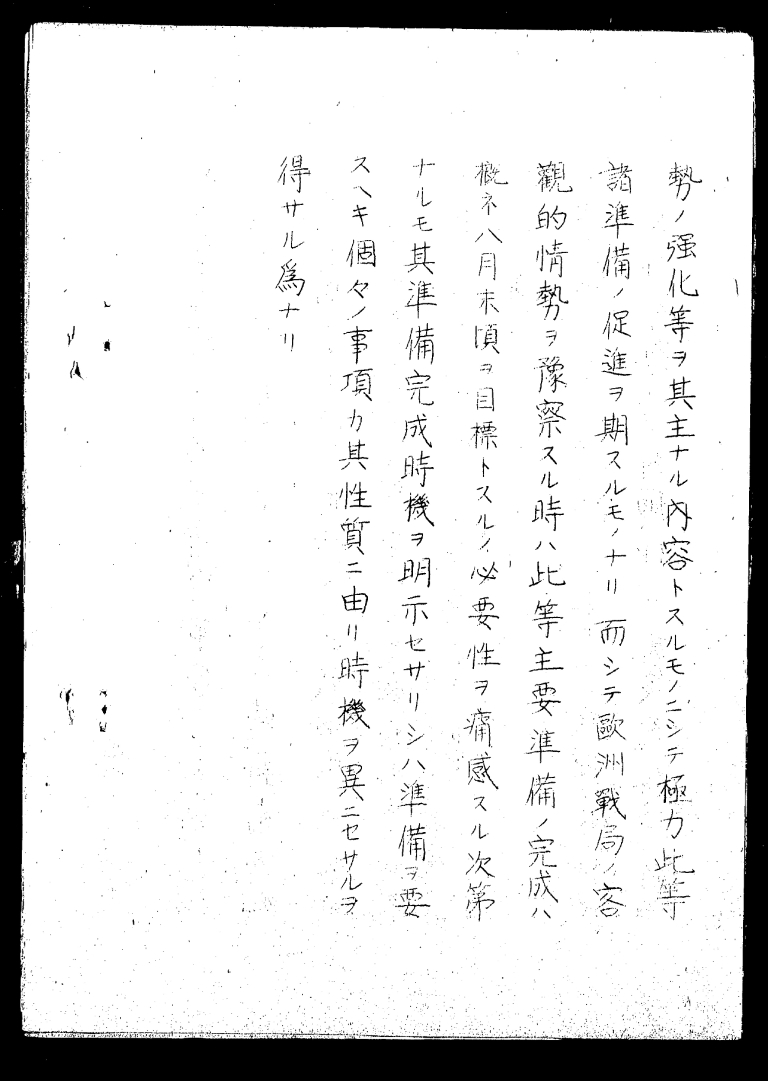 勢ノ强化等ヲ其主ナル內容トスルモノニシテ極力此等
諸準備ノ促進ヲ期スルモノナリ而シテ歐洲戰局ノ客
觀的情勢ヲ豫察スル時ハ此等主要準備ノ完成ハ
概ネ八月末頃ヲ目標トスルノ必要性ヲ痛感スル次第
ナルモ其準備完成時機ヲ明示セサリシハ準備ヲ要
スヘキ個々ノ事項カ其性質ニ由リ時機ヲ異ニセサルヲ
得サル爲ナリ